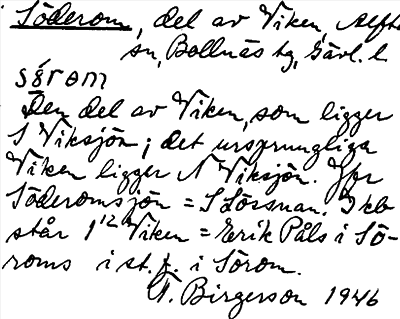 Söderom, del av Viken, Alfta
sn, Bollnäs tg, Gävl. l
sǿrom
Den del av Viken, som ligger
S Viksjön; det ursprungliga
Viken ligger N Viksjön. Jfr
Söderomsjön = S Lössnan. I kb
står 1/12 Viken = Erik Påls i Sö-
roms i st. f. i Sörom.
T. Birgerson 1946